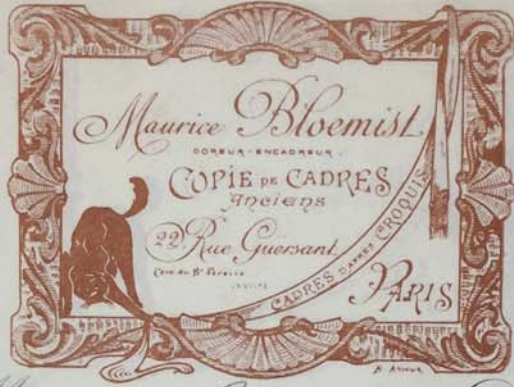 Maurice Bloemist
DOREUR-ENCADREUR
COPIE DE CADRES
Anciens
22, Rue Guersant
CADRES D'APRÈS CROQUIS
PARIS